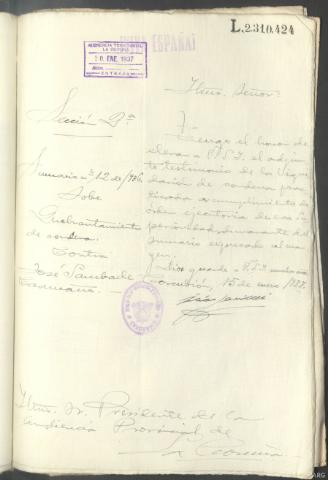 L.2310.424
¡VIVA ESPAÑA!
AUDIENCIA TERRITORIAL
LA CORUÑA
20 ENE. 1937
ENTRADA
Iltmo. Señor:
Sección 2ª
Tengo el honor de
elevar a V.S.I. el adjun
to testimonio de la liqui
dación de condena prac
ticada en cumplimiento de
orden ejecutoria de esa Su
perioridad, dimanante del
sumario expresado al mar
gen.
Dios guarde a V.S.I. muchos años
Corcubión, 15 de enero 1937.
Sumario nº 12 de 1936
Sobre
Quebrantamiento
de condena
Contra
José Sambade
Iltmo. Sr. Presidente de la
Audiencia Provincial de
La Coruña